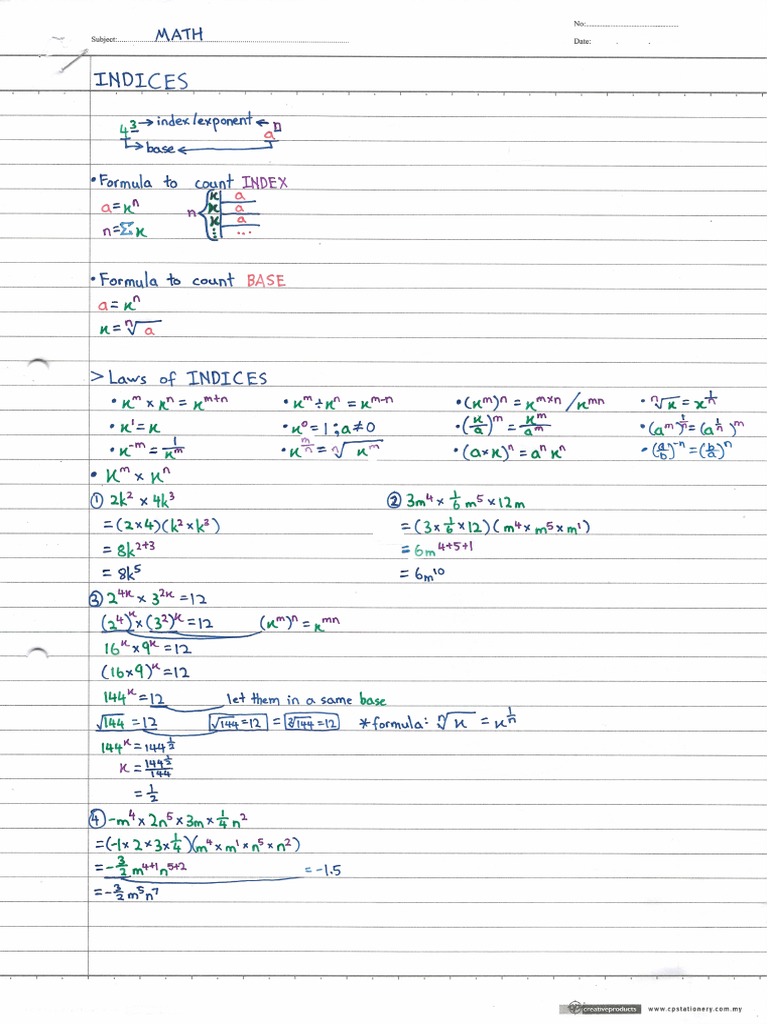 No:
Subject: MATH
Date: . .
INDICES
4³ → index/exponent ← aⁿ
→ base ←
• Formula to count INDEX
a = xⁿ
n = Σx
n { x | a
x | a
x | a
⋮ ...
• Formula to count BASE
a = xⁿ
x = ⁿ√a
> Laws of INDICES
• xᵐ × xⁿ = xᵐ⁺ⁿ • xᵐ ÷ xⁿ = xᵐ⁻ⁿ • (xᵐ)ⁿ = xᵐˣⁿ / xᵐⁿ • ⁿ√x = x^(1/n)
• x¹ = x • x⁰ = 1 ; a ≠ 0 • (x/a)ᵐ = xᵐ/aᵐ • (aᵐ)^(1/n) = (a^(1/n))ᵐ
• x⁻ᵐ = 1/xᵐ • x^(m/n) = ⁿ√xᵐ • (a×x)ⁿ = aⁿxⁿ • (a/b)⁻ⁿ = (b/a)ⁿ
• xᵐ × xⁿ
① 2k² × 4k³
= (2×4)(k² × k³)
= 8k²⁺³
= 8k⁵
② 3m⁴ × 1/6 m⁵ × 12m
= (3 × 1/6 × 12)(m⁴ × m⁵ × m¹)
= 6m⁴⁺⁵⁺¹
= 6m¹⁰
③ 2⁴ˣ × 3²ˣ = 12
(2⁴)ˣ × (3²)ˣ = 12 (xᵐ)ⁿ = xᵐⁿ
16ˣ × 9ˣ = 12
(16×9)ˣ = 12
144ˣ = 12 let them in a same base
√144 = 12 √144 = 12 = ²√144 = 12 *formula: ⁿ√x = x^(1/n)
144ˣ = 144^(1/2)
x = 144^(1/2)/144
= 1/2
④ -m⁴ × 2n⁵ × 3m × 1/4 n²
= (-1 × 2 × 3 × 1/4)(m⁴ × m¹ × n⁵ × n²)
= -3/2 m⁴⁺¹n⁵⁺² = -1.5
= -3/2 m⁵n⁷
creativeproducts www.cpstationery.com.my